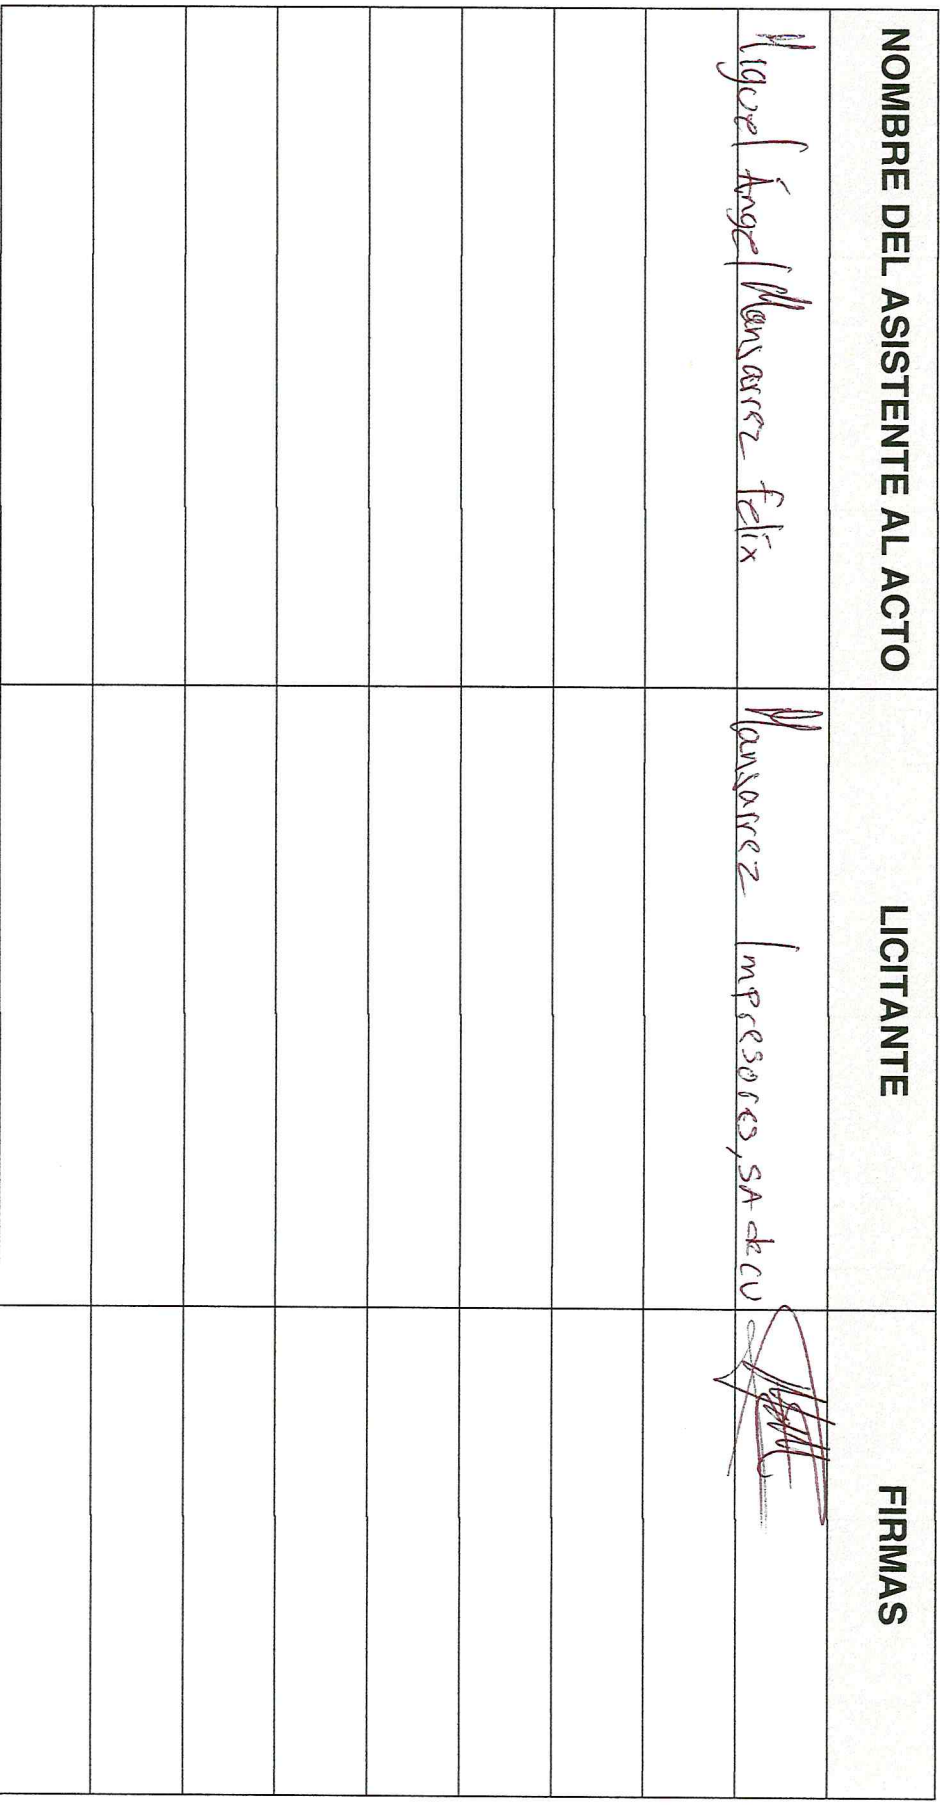 NOMBRE DEL ASISTENTE AL ACTO LICITANTE FIRMAS
Miguel Ángel Manjarrez Felix Manjarrez Impresores, SA de CV